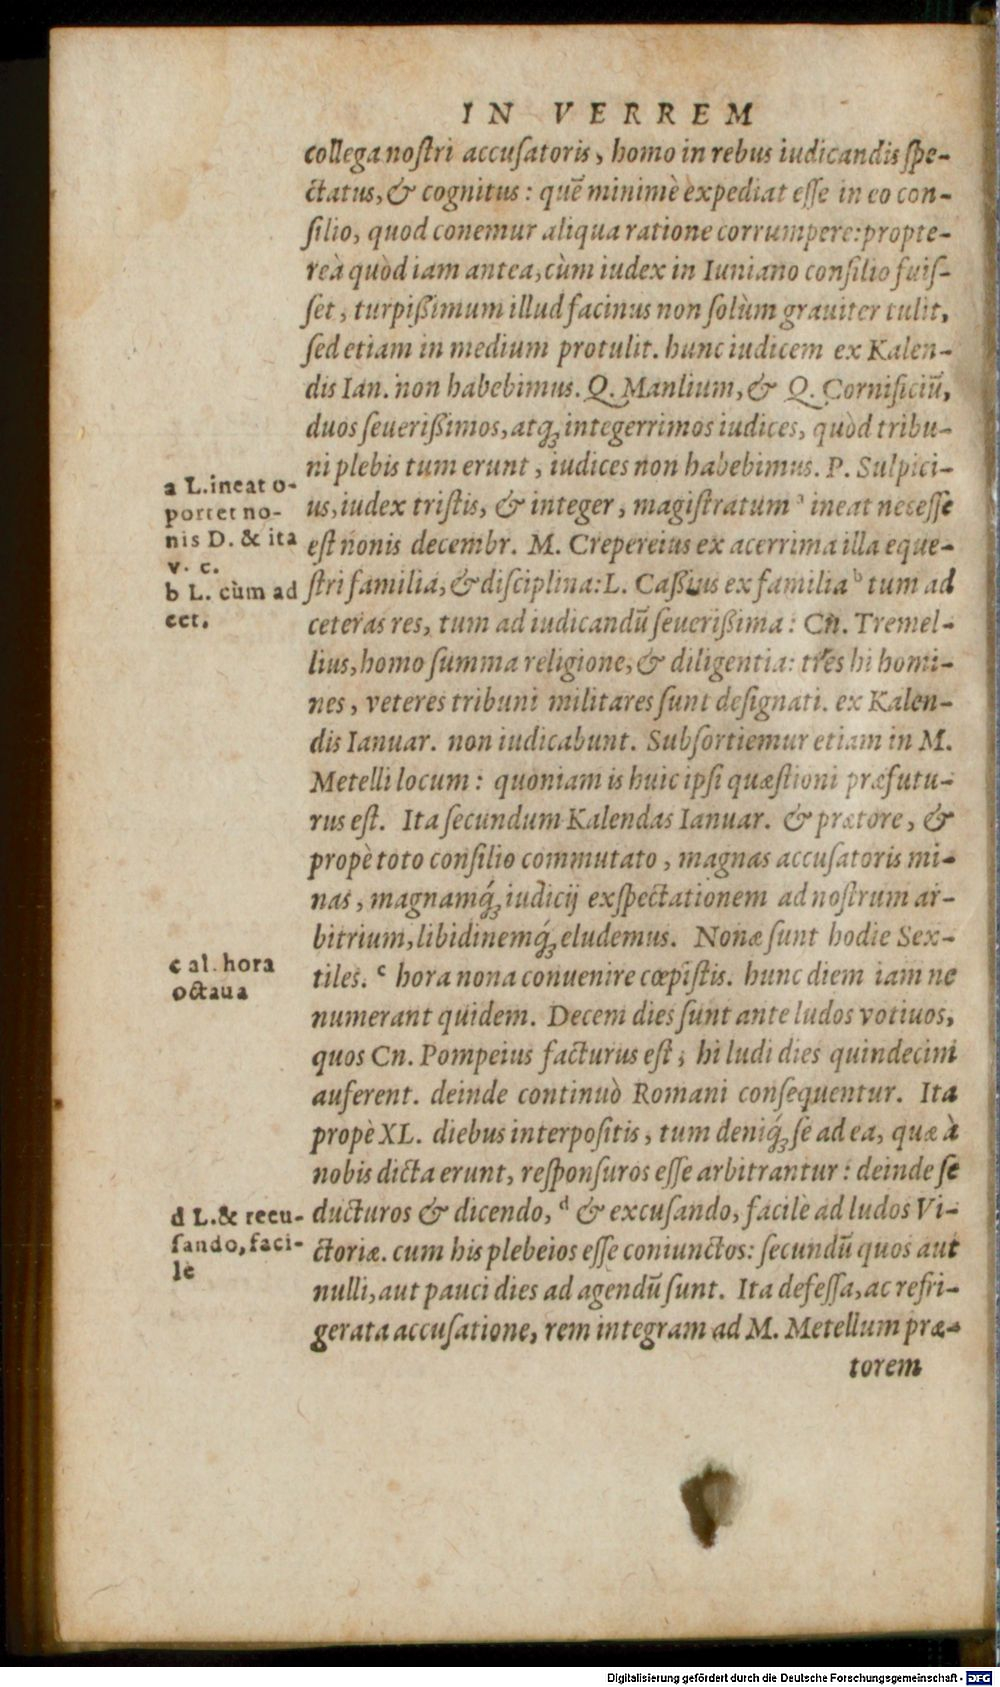 IN VERREM
collega noſtri accuſatoris, homo in rebus iudicandis ſpe-
ctatus, & cognitus: quē minimè expediat eſſe in eo con-
ſilio, quod conemur aliqua ratione corrumpere: propte-
reà quòd iam antea, cùm iudex in Iuniano conſilio fuiſ-
ſet, turpißimum illud facinus non ſolùm grauiter tulit,
ſed etiam in medium protulit. hunc iudicem ex Kalen-
dis Ian. non habebimus. Q. Manlium, & Q. Cornificiū,
duos ſeuerißimos, atq; integerrimos iudices, quòd tribu-
ni plebis tum erunt, iudices non habebimus. P. Sulpici-
us, iudex triſtis, & integer, magiſtratum ᵃ ineat neceſſe
eſt nonis decembr. M. Crepereius ex acerrima illa eque-
ſtri familia, & diſciplina: L. Caßius ex familia ᵇ tum ad
ceteras res, tum ad iudicandū ſeuerißima: Cn. Tremel-
lius, homo ſumma religione, & diligentia: tres hi homi-
nes, veteres tribuni militares ſunt deſignati. ex Kalen-
dis Ianuar. non iudicabunt. Subſortiemur etiam in M.
Metelli locum: quoniam is huic ipſi quæſtioni præfutu-
rus eſt. Ita ſecundum Kalendas Ianuar. & prætore, &
propè toto conſilio commutato, magnas accuſatoris mi-
nas, magnamq́; iudicij exſpectationem ad noſtrum ar-
bitrium, libidinemq́; eludemus. Nonæ ſunt hodie Sex-
tiles. ᶜ hora nona conuenire cœpiſtis. hunc diem iam ne
numerant quidem. Decem dies ſunt ante ludos votiuos,
quos Cn. Pompeius facturus eſt; hi ludi dies quindecim
auferent. deinde continuò Romani conſequentur. Ita
propè XL. diebus interpoſitis, tum deniq́; ſe ad ea, quæ à
nobis dicta erunt, reſponſuros eſſe arbitrantur: deinde ſe
ducturos & dicendo, ᵈ & excuſando, facilè ad ludos Vi-
ctoriæ. cum his plebeios eſſe coniunctos: ſecundū quos aut
nulli, aut pauci dies ad agendū ſunt. Ita defeſſa, ac refri-
gerata accuſatione, rem integram ad M. Metellum præ-
torem
a L. ineat o-
portet no-
nis D. & ita
v. c.
b L. cùm ad
cet.
c al. hora
octaua
d L. & recu-
ſando, faci-
lè
Digitalisierung gefördert durch die Deutsche Forschungsgemeinschaft - DFG